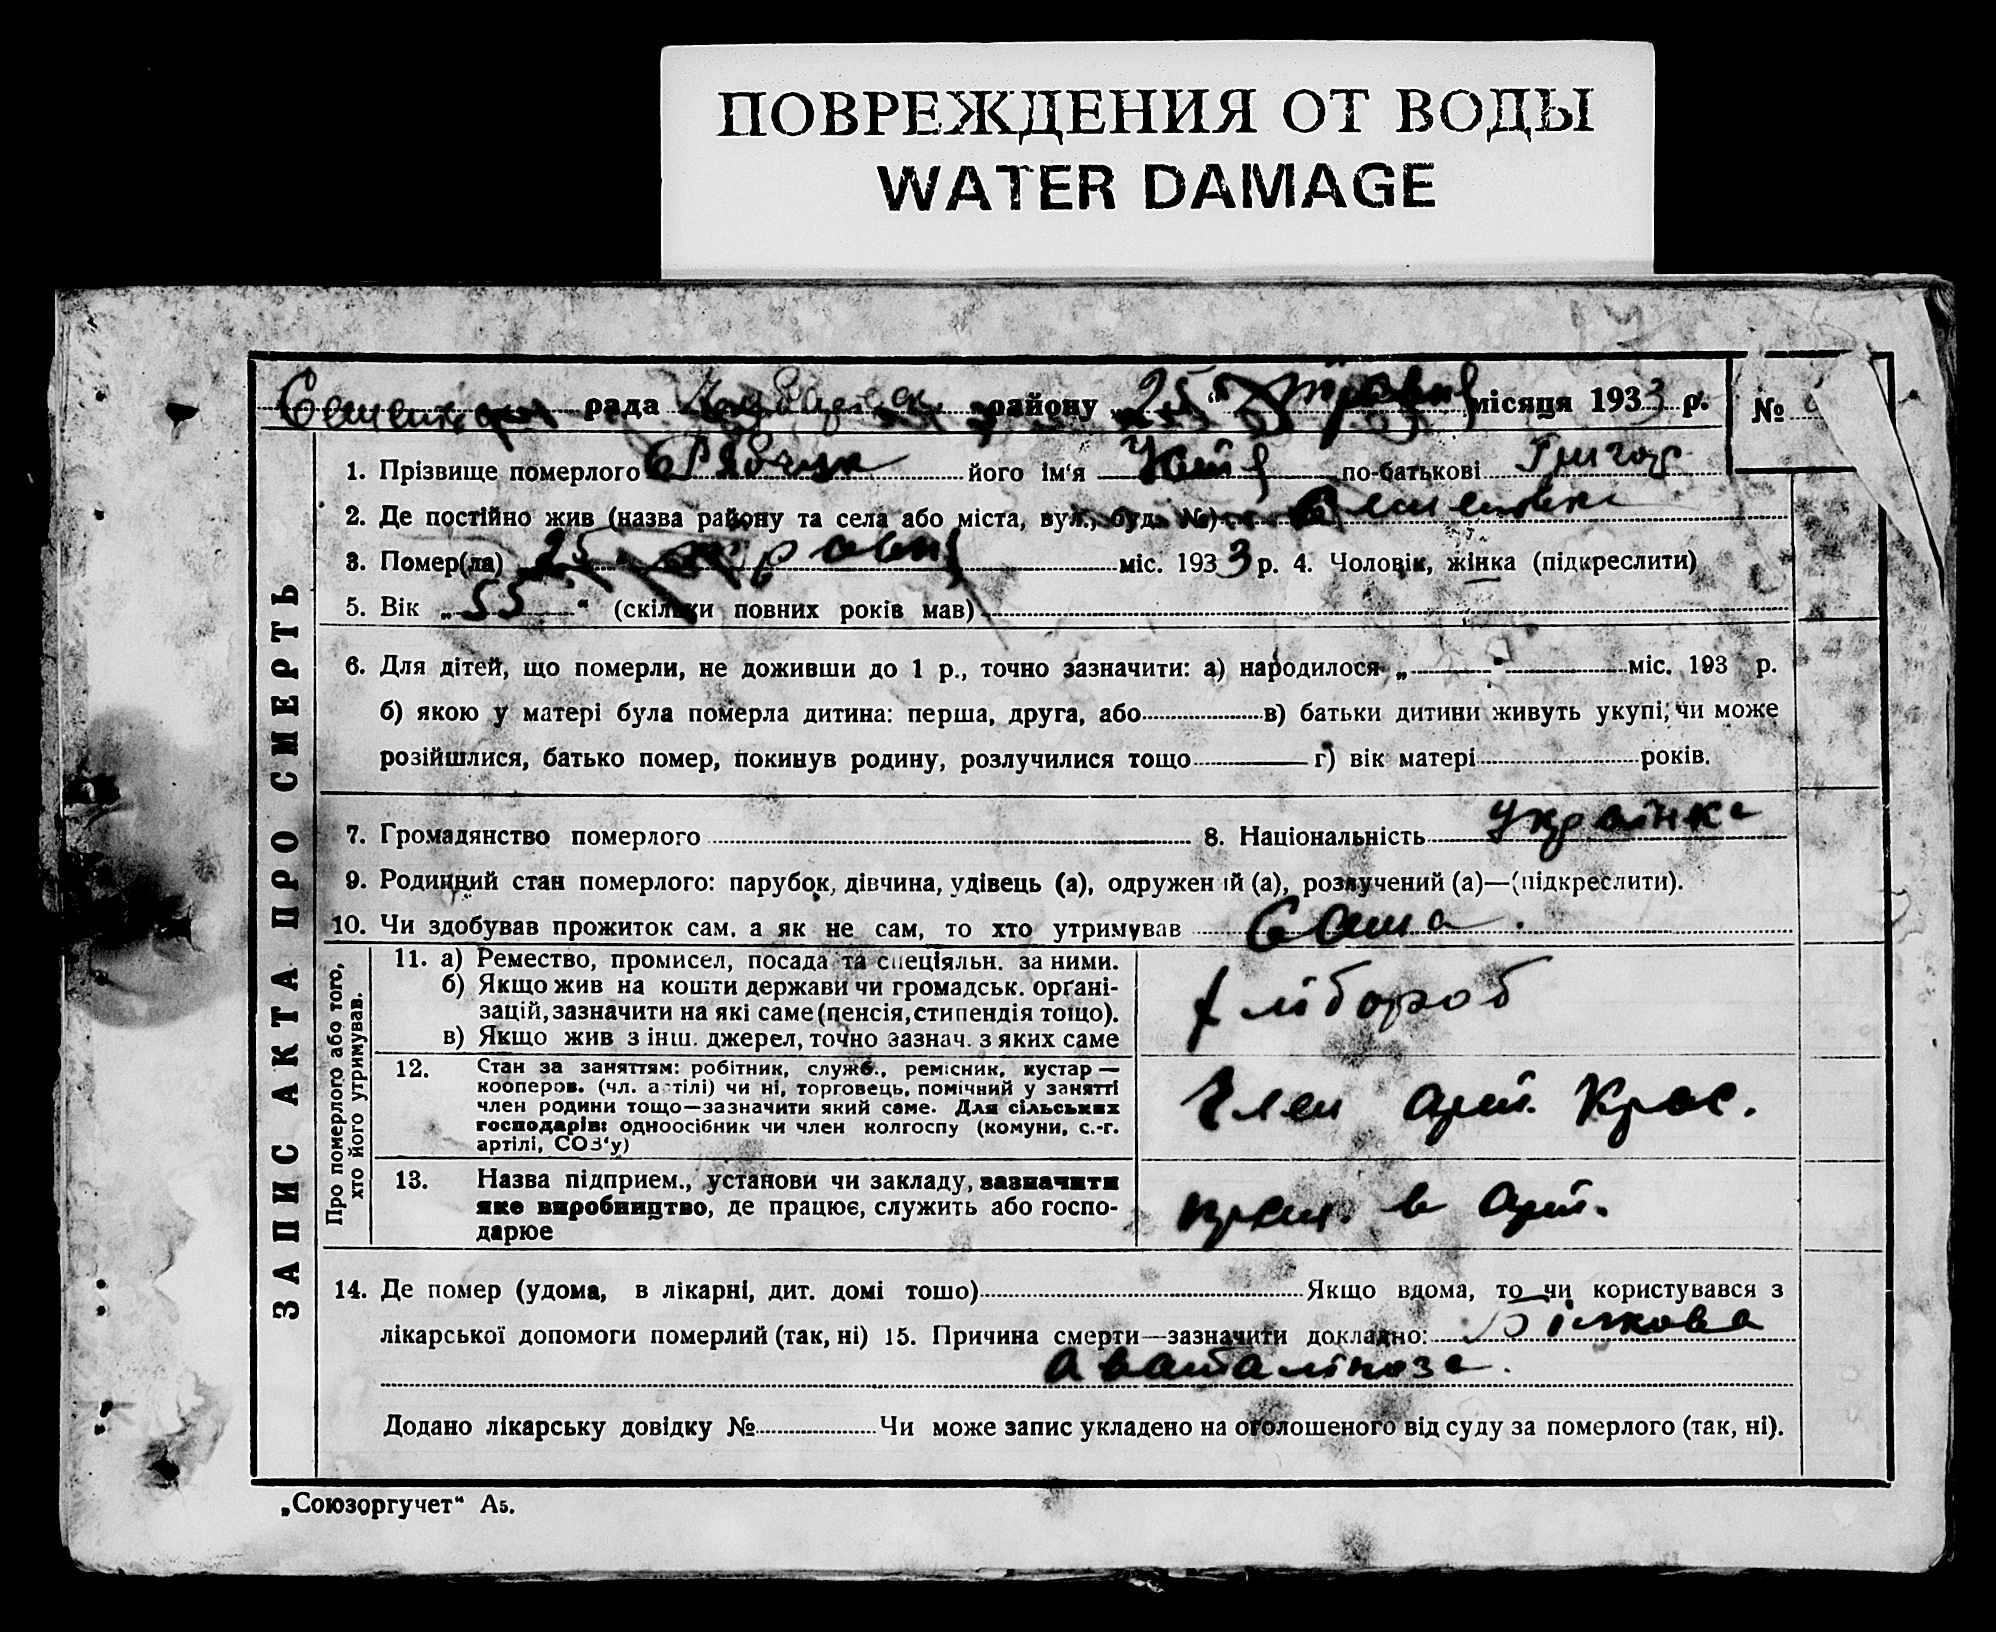 ПОВРЕЖДЕНИЯ ОТ ВОДЫ
WATER DAMAGE
рада району 25 місяця 1933 р. №
ЗАПИС АКТА ПРО СМЕРТЬ
1. Прізвище померлого його ім'я по-батькові Григор
2. Де постійно жив (назва району та села або міста, вул., буд. №)
3. Помер(ла) 25 травня міс. 1933 р. 4. Чоловік, жінка (підкреслити)
5. Вік „55" (скільки повних років мав)
6. Для дітей, що померли, не доживши до 1 р., точно зазначити: а) народилося „ " міс. 193 р.
б) якою у матері була померла дитина: перша, друга, або в) батьки дитини живуть укупі, чи може
розійшлися, батько помер, покинув родину, розлучилися тощо г) вік матері років.
7. Громадянство померлого 8. Національність українка
9. Родинний стан померлого: парубок, дівчина, удівець (а), одружений (а), розлучений (а)—(підкреслити).
10. Чи здобував прожиток сам, а як не сам, то хто утримував Сама.
Про померлого або того,
хто його утримував.
11. а) Ремество, промисел, посада та спеціяльн. за ними.
б) Якщо жив на кошти держави чи громадськ. орґані-
зацій, зазначити на які саме (пенсія, стипендія тощо).
в) Якщо жив з інш. джерел, точно зазнач. з яких саме
хлібороб
12. Стан за заняттям: робітник, служб., ремісник, кустар—
кооперов. (чл. артілі) чи ні, торговець, помічний у занятті
член родини тощо—зазначити який саме. Для сільських
господарів: одноосібник чи член колгоспу (комуни, с.-г.
артілі, СОЗ'у)
Член арт.
13. Назва підприєм., установи чи закладу, зазначити
яке виробництво, де працює, служить або госпо-
дарює
в арт.
14. Де помер (удома, в лікарні, дит. домі тошо) Якщо вдома, то чи користувався з
лікарської допомоги померлий (так, ні) 15. Причина смерти—зазначити докладно: Білкова
Додано лікарську довідку № Чи може запис укладено на оголошеного від суду за померлого (так, ні).
„Союзоргучет" А5.